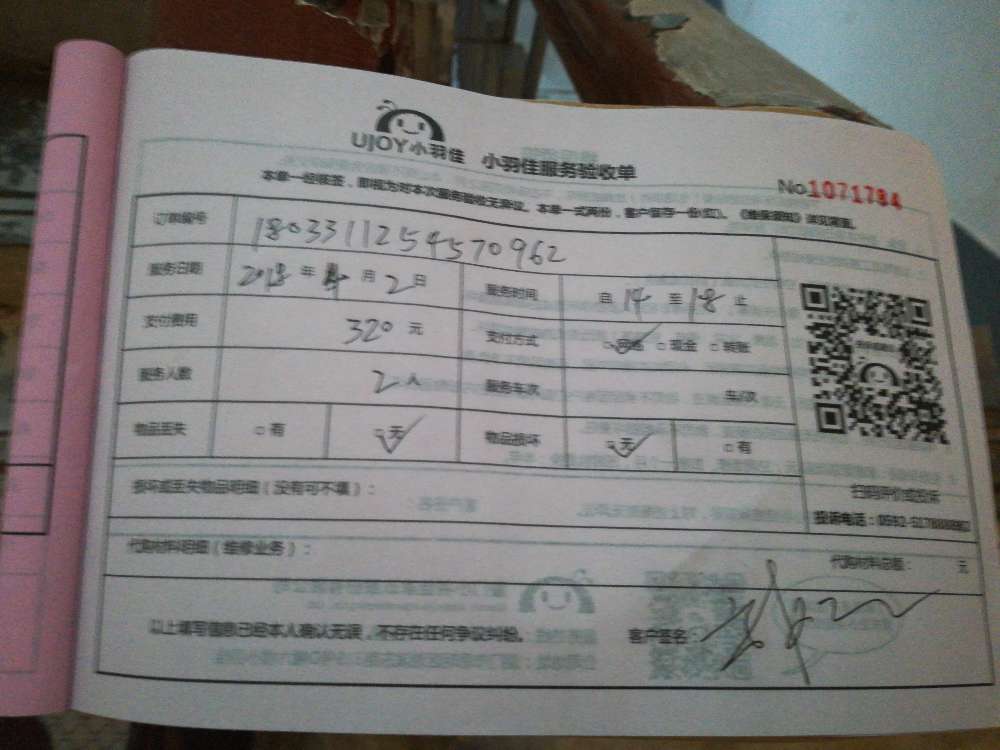 UJOY小羽佳 小羽佳服务验收单
No.1071784
本单一经核签，即视为对本次服务验收无异议。本单一式两份，客户留存一份(红)。《维保须知》详见背面。
订单编号 1803311254570962
服务日期 2018年4月2日 服务时间 自14至18止
支付费用 320元 支付方式 □网络 □现金 □转账
服务人数 2人 服务车次 车/次
物品丢失 □有 □无 物品损坏 □无 □有
损坏或丢失物品明细（没有可不填）：
扫码评价或投诉
投诉电话：0592-
代购材料明细（维修业务）： 代购材料总额： 元
以上填写信息已经本人确认无误，不存在任何争议纠纷。 客户签名：